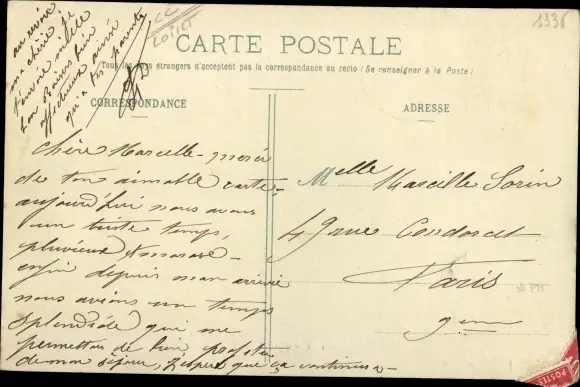 au revoir
ma chérie je
t'envoie mille
bon baisers bien
affectueux ainsi
qu'à tes parents
CC
LOIRET
1336
CARTE POSTALE
Tous les pays étrangers n'acceptent pas la correspondance au recto (Se renseigner à la Poste)
CORRESPONDANCE
ADRESSE
Chère Marcelle - merci
de ton aimable carte -
aujourd'hui nous avons
un triste temps,
pluvieux
enfin depuis mon arrivée
nous avions un temps
splendide qui me
permettais de bien profiter
de mon séjour, j'espère que ça continuera -
Melle Marcelle Sorin
49 rue Condorcet
Paris
9em
POSTES